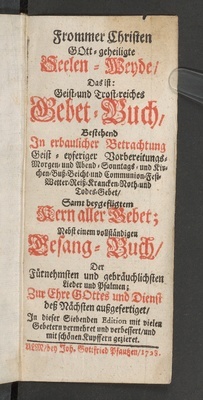 Frommer Christen
GOtt-geheiligte
Seelen-Weyde/
Das ist:
Geist-und Trost-reiches
Gebet-Buch/
Bestehend
In erbaulicher Betrachtung
Geist-eyferiger Vorbereitungs-
Morgen und Abend-Sonntags-und Kir-
chen-Buß-Beicht-und Communion-Fest-
Wetter-Reiß-Krancken-Noth-und
Todes-Gebet/
Samt beygefügtem
Kern aller Gebet;
Nebst einem vollständigen
Gesang-Buch/
Der
Fürnehmsten und gebräuchlichsten
Lieder und Psalmen;
Zur Ehre GOttes und Dienst
deß Nächsten außgefertiget/
In dieser Siebenden Edition mit vielen
Gebetern vermehret und verbessert/und
mit schönen Kupffern gezieret.
ULM/bey Joh. Gottfried